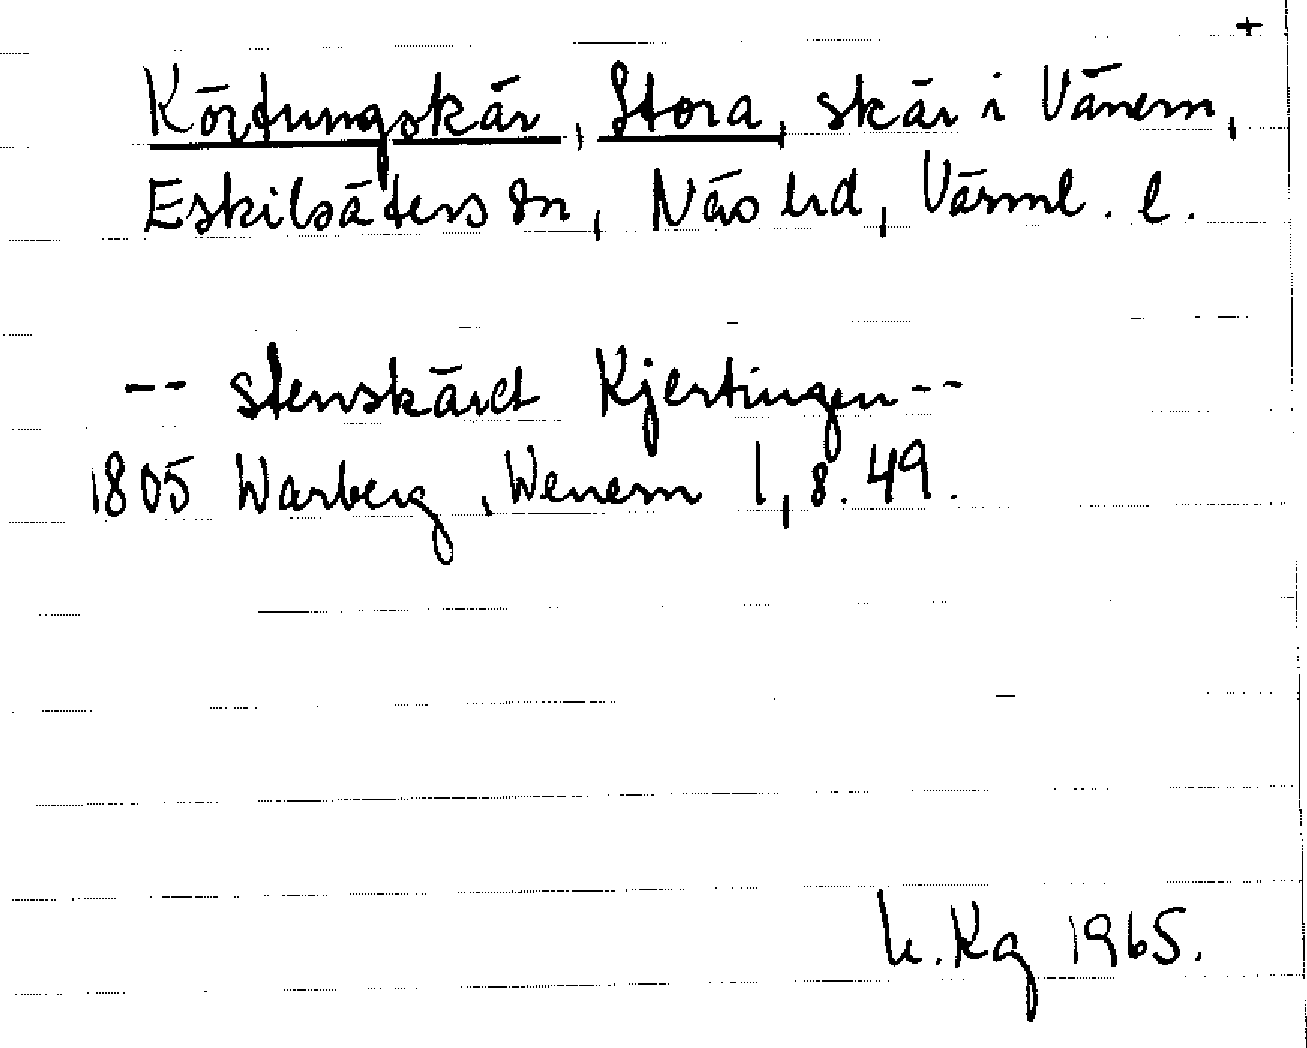 +
Körtungskär, Stora, skär i Vänern,
Eskilsäters sn, Näs hd, Värml. l.
-- stenskäret Kjertingen --
1805 Warberg, Wenern 1, s. 49.
h. Kg 1965.